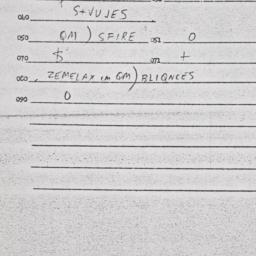 040 S+VUJES
050 GM) SFIRE 051 0
070 $ 072 +
060 ZEMELAX im GM) BLIQNCES
090 0